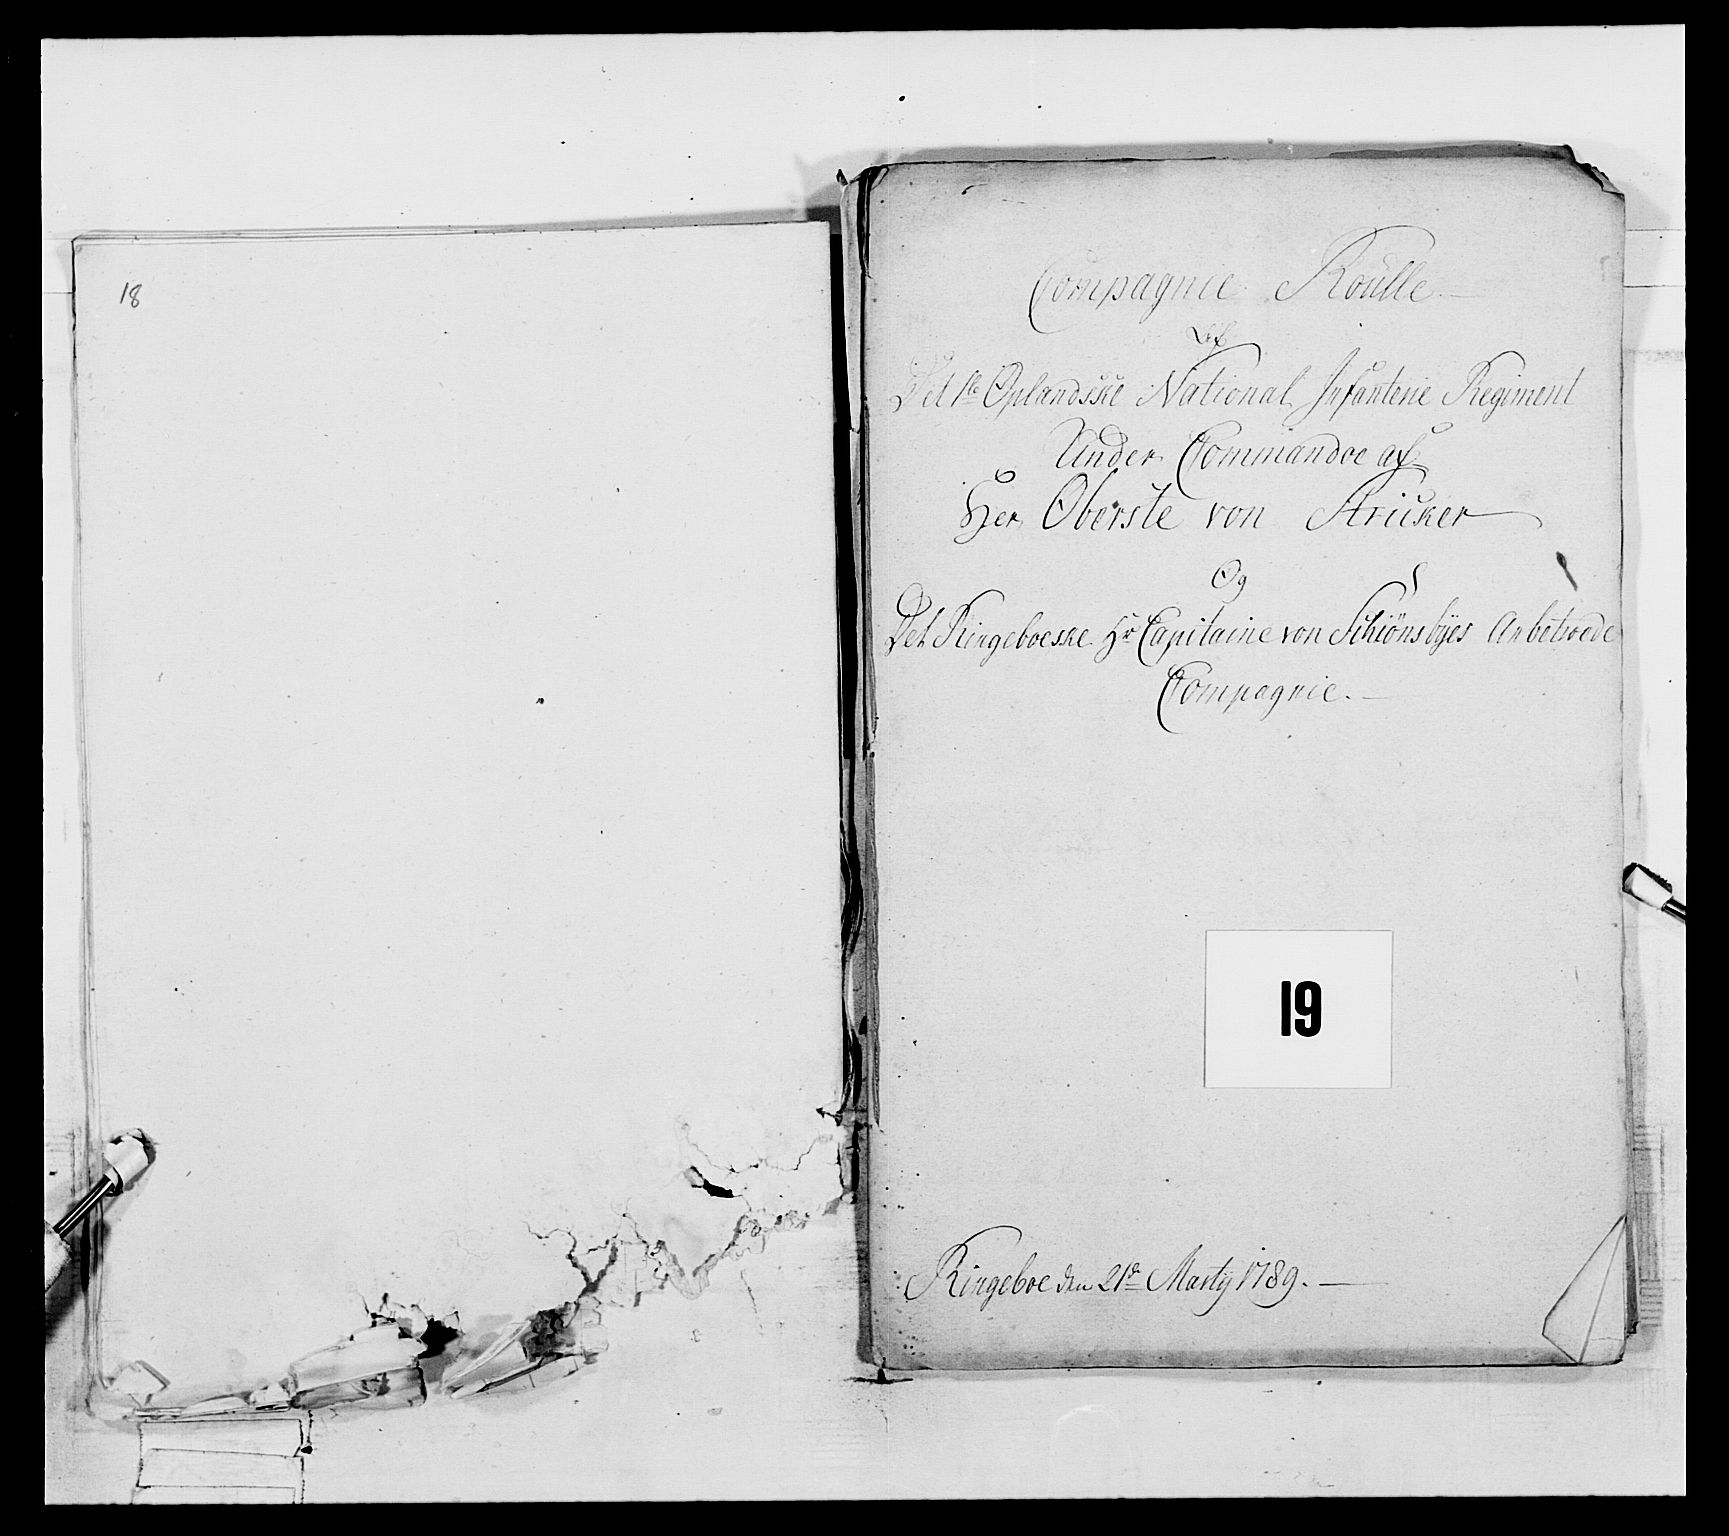 18
Compagnie Roulle
Af
Det 1te Oplandske National Infanterie Regiment
Under Commandoe af
Her Oberste von Stricker
Og
Det Ringeboeske Hr Capitaine von Schiönsbÿes Anbetroede
Compagnie.
19
Ringeboe den 21de Martÿ 1789.